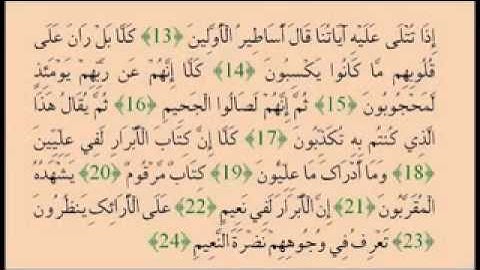 إِذَا تُتْلَى عَلَيْهِ آيَاتُنَا قَالَ أَسَاطِيرُ الْأَوَّلِينَ ﴿13﴾ كَلَّا بَلْ رَانَ عَلَى
قُلُوبِهِم مَّا كَانُوا يَكْسِبُونَ ﴿14﴾ كَلَّا إِنَّهُمْ عَن رَّبِّهِمْ يَوْمَئِذٍ
لَّمَحْجُوبُونَ ﴿15﴾ ثُمَّ إِنَّهُمْ لَصَالُوا الْجَحِيمِ ﴿16﴾ ثُمَّ يُقَالُ هَذَا
الَّذِي كُنتُم بِهِ تُكَذِّبُونَ ﴿17﴾ كَلَّا إِنَّ كِتَابَ الْأَبْرَارِ لَفِي عِلِّيِّينَ
﴿18﴾ وَمَا أَدْرَاكَ مَا عِلِّيُّونَ ﴿19﴾ كِتَابٌ مَّرْقُومٌ ﴿20﴾ يَشْهَدُهُ
الْمُقَرَّبُونَ ﴿21﴾ إِنَّ الْأَبْرَارَ لَفِي نَعِيمٍ ﴿22﴾ عَلَى الْأَرَائِكِ يَنظُرُونَ
﴿23﴾ تَعْرِفُ فِي وُجُوهِهِمْ نَضْرَةَ النَّعِيمِ ﴿24﴾